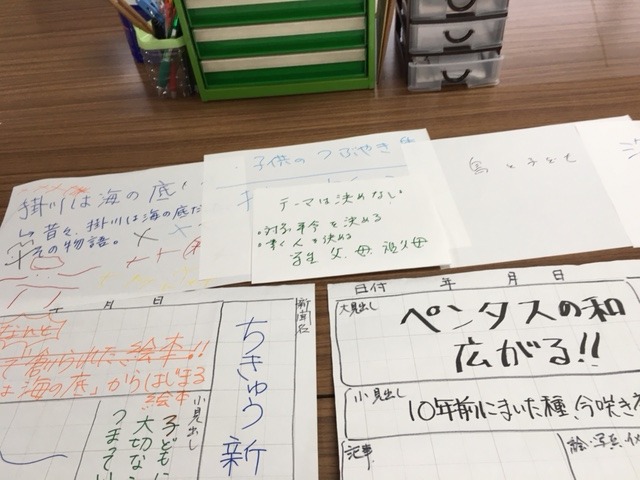 掛川は海の底
昔々、掛川は海の底だ
その物語。
子供のつぶやき
テーマは決めない
・対象年令を決める
・書く人を決める
学生 父、母、祖父母
鳥と子ども
月 日
なんと
で創られた絵本!!
は海の底」からはじまる
絵本
小見出し
子どもに
大切な
つまってい
新聞名
ちきゅう新
日付 年 月 日
大見出し
ペンタスの和
広がる!!
小見出し
10年前にまいた種、今咲き
記事
絵・写真